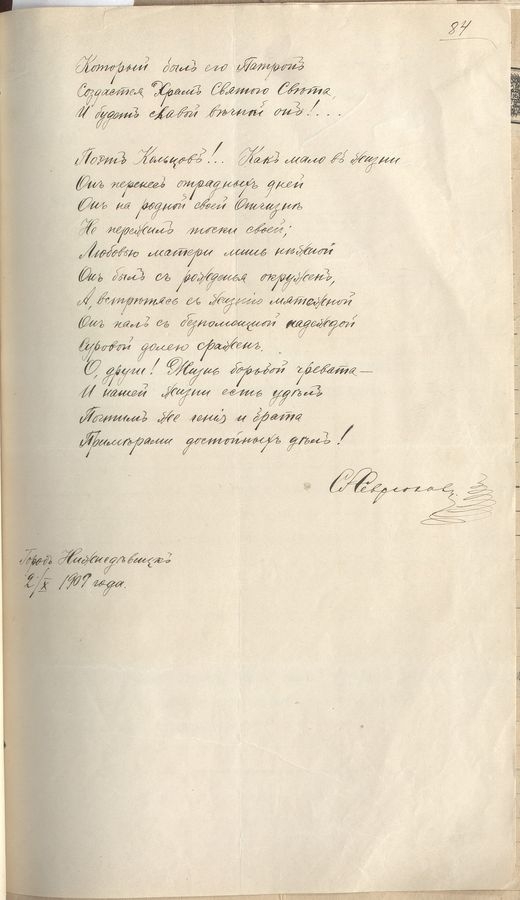 84
Который былъ его Патронъ
Создастся Храмъ Святого Свѣта
И будетъ славой вѣчной онъ!...
Поэтъ Кольцовъ!... Какъ мало въ жизни
Онъ перенесъ отрадныхъ дней
Онъ на родной своей Отчизнѣ
Не пережилъ тоски своей;
Любовью матери лишь нѣжной
Онъ былъ съ рожденья окруженъ,
А встрѣтясь съ жизнію мятежной
Онъ палъ съ безпомощной надеждой
Суровой долею сраженъ.
О, други! Жизнь борьбой чревата—
И нашей жизни есть удѣлъ
Почтимъ же генія и брата
Примѣрами достойныхъ дѣлъ!
Городъ Нижнедѣвицкъ
2/X 1909 года.